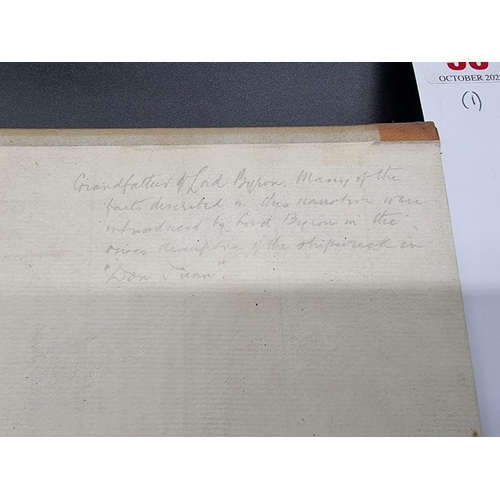 OCTOBER 202
(1)
Grandfather of Lord Byron. Many of the
facts described in this narrative were
introduced by Lord Byron in the
descriptive of the shipwreck in
"Don Juan".